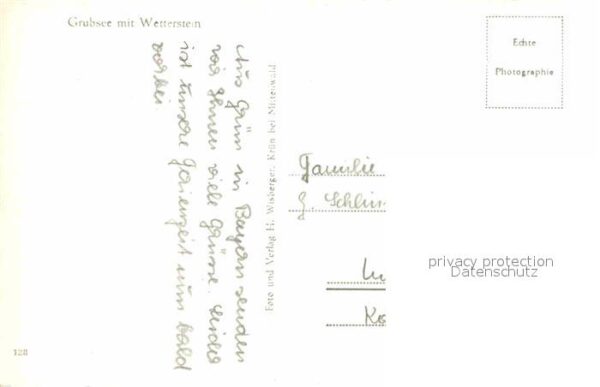 Grubsee mit Wetterstein
Echte
Photographie
Aus Grün in Bayern senden
wir Ihnen viele Grüsse. Leider
ist unsere Ferienzeit nun bald
vorbei.
Foto und Verlag H. Wisberger, Krün bei Mittenwald
Familie
G.
privacy protection
Datenschutz
128